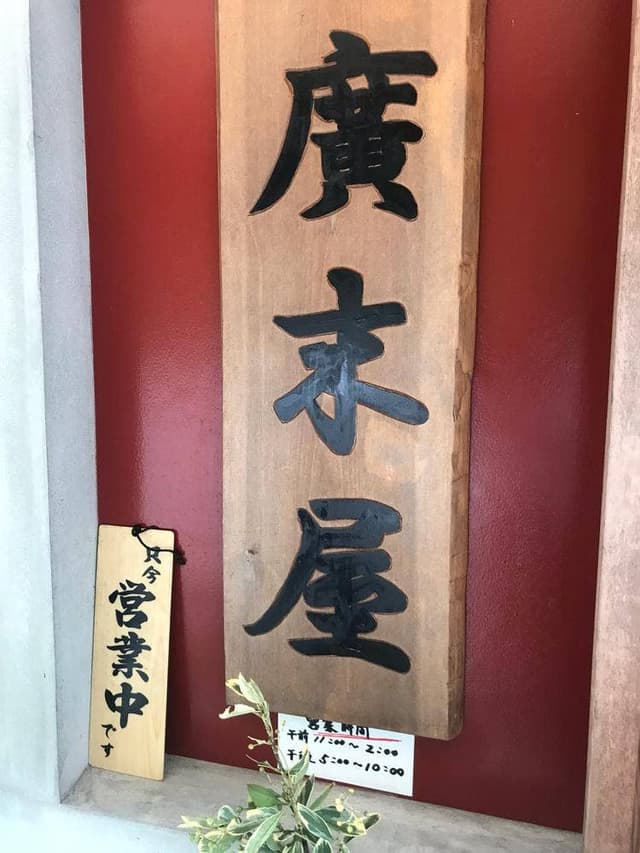 廣末屋
只今
営業中
です
営業時間
午前11:00～2:00
午後5:00～10:00